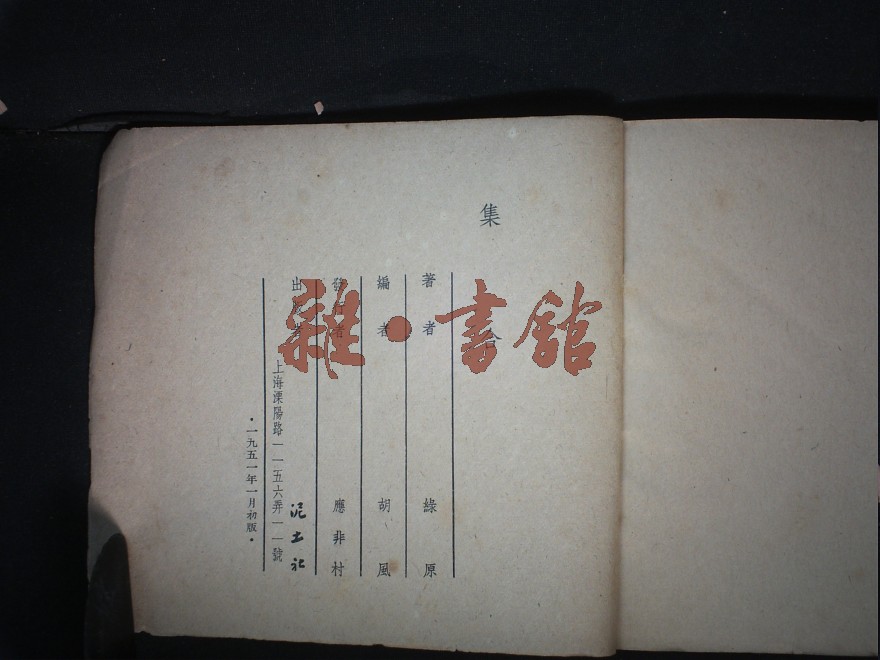 集合
著者 綠原
編者 胡風
發行者 應非村
出版者 泥土社
上海溧陽路一一五六弄一一號
·一九五一年一月初版·
雜·書館